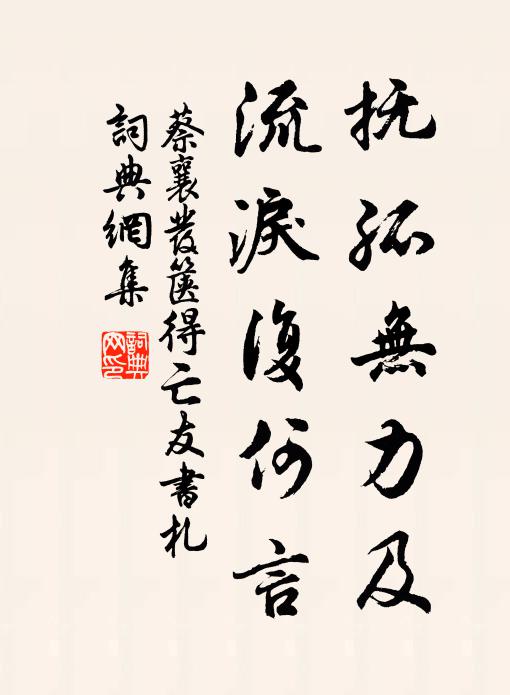 抚孤無力及
流淚復何言
蔡襄發篋得亡友書札
詞典網集
詞典网印